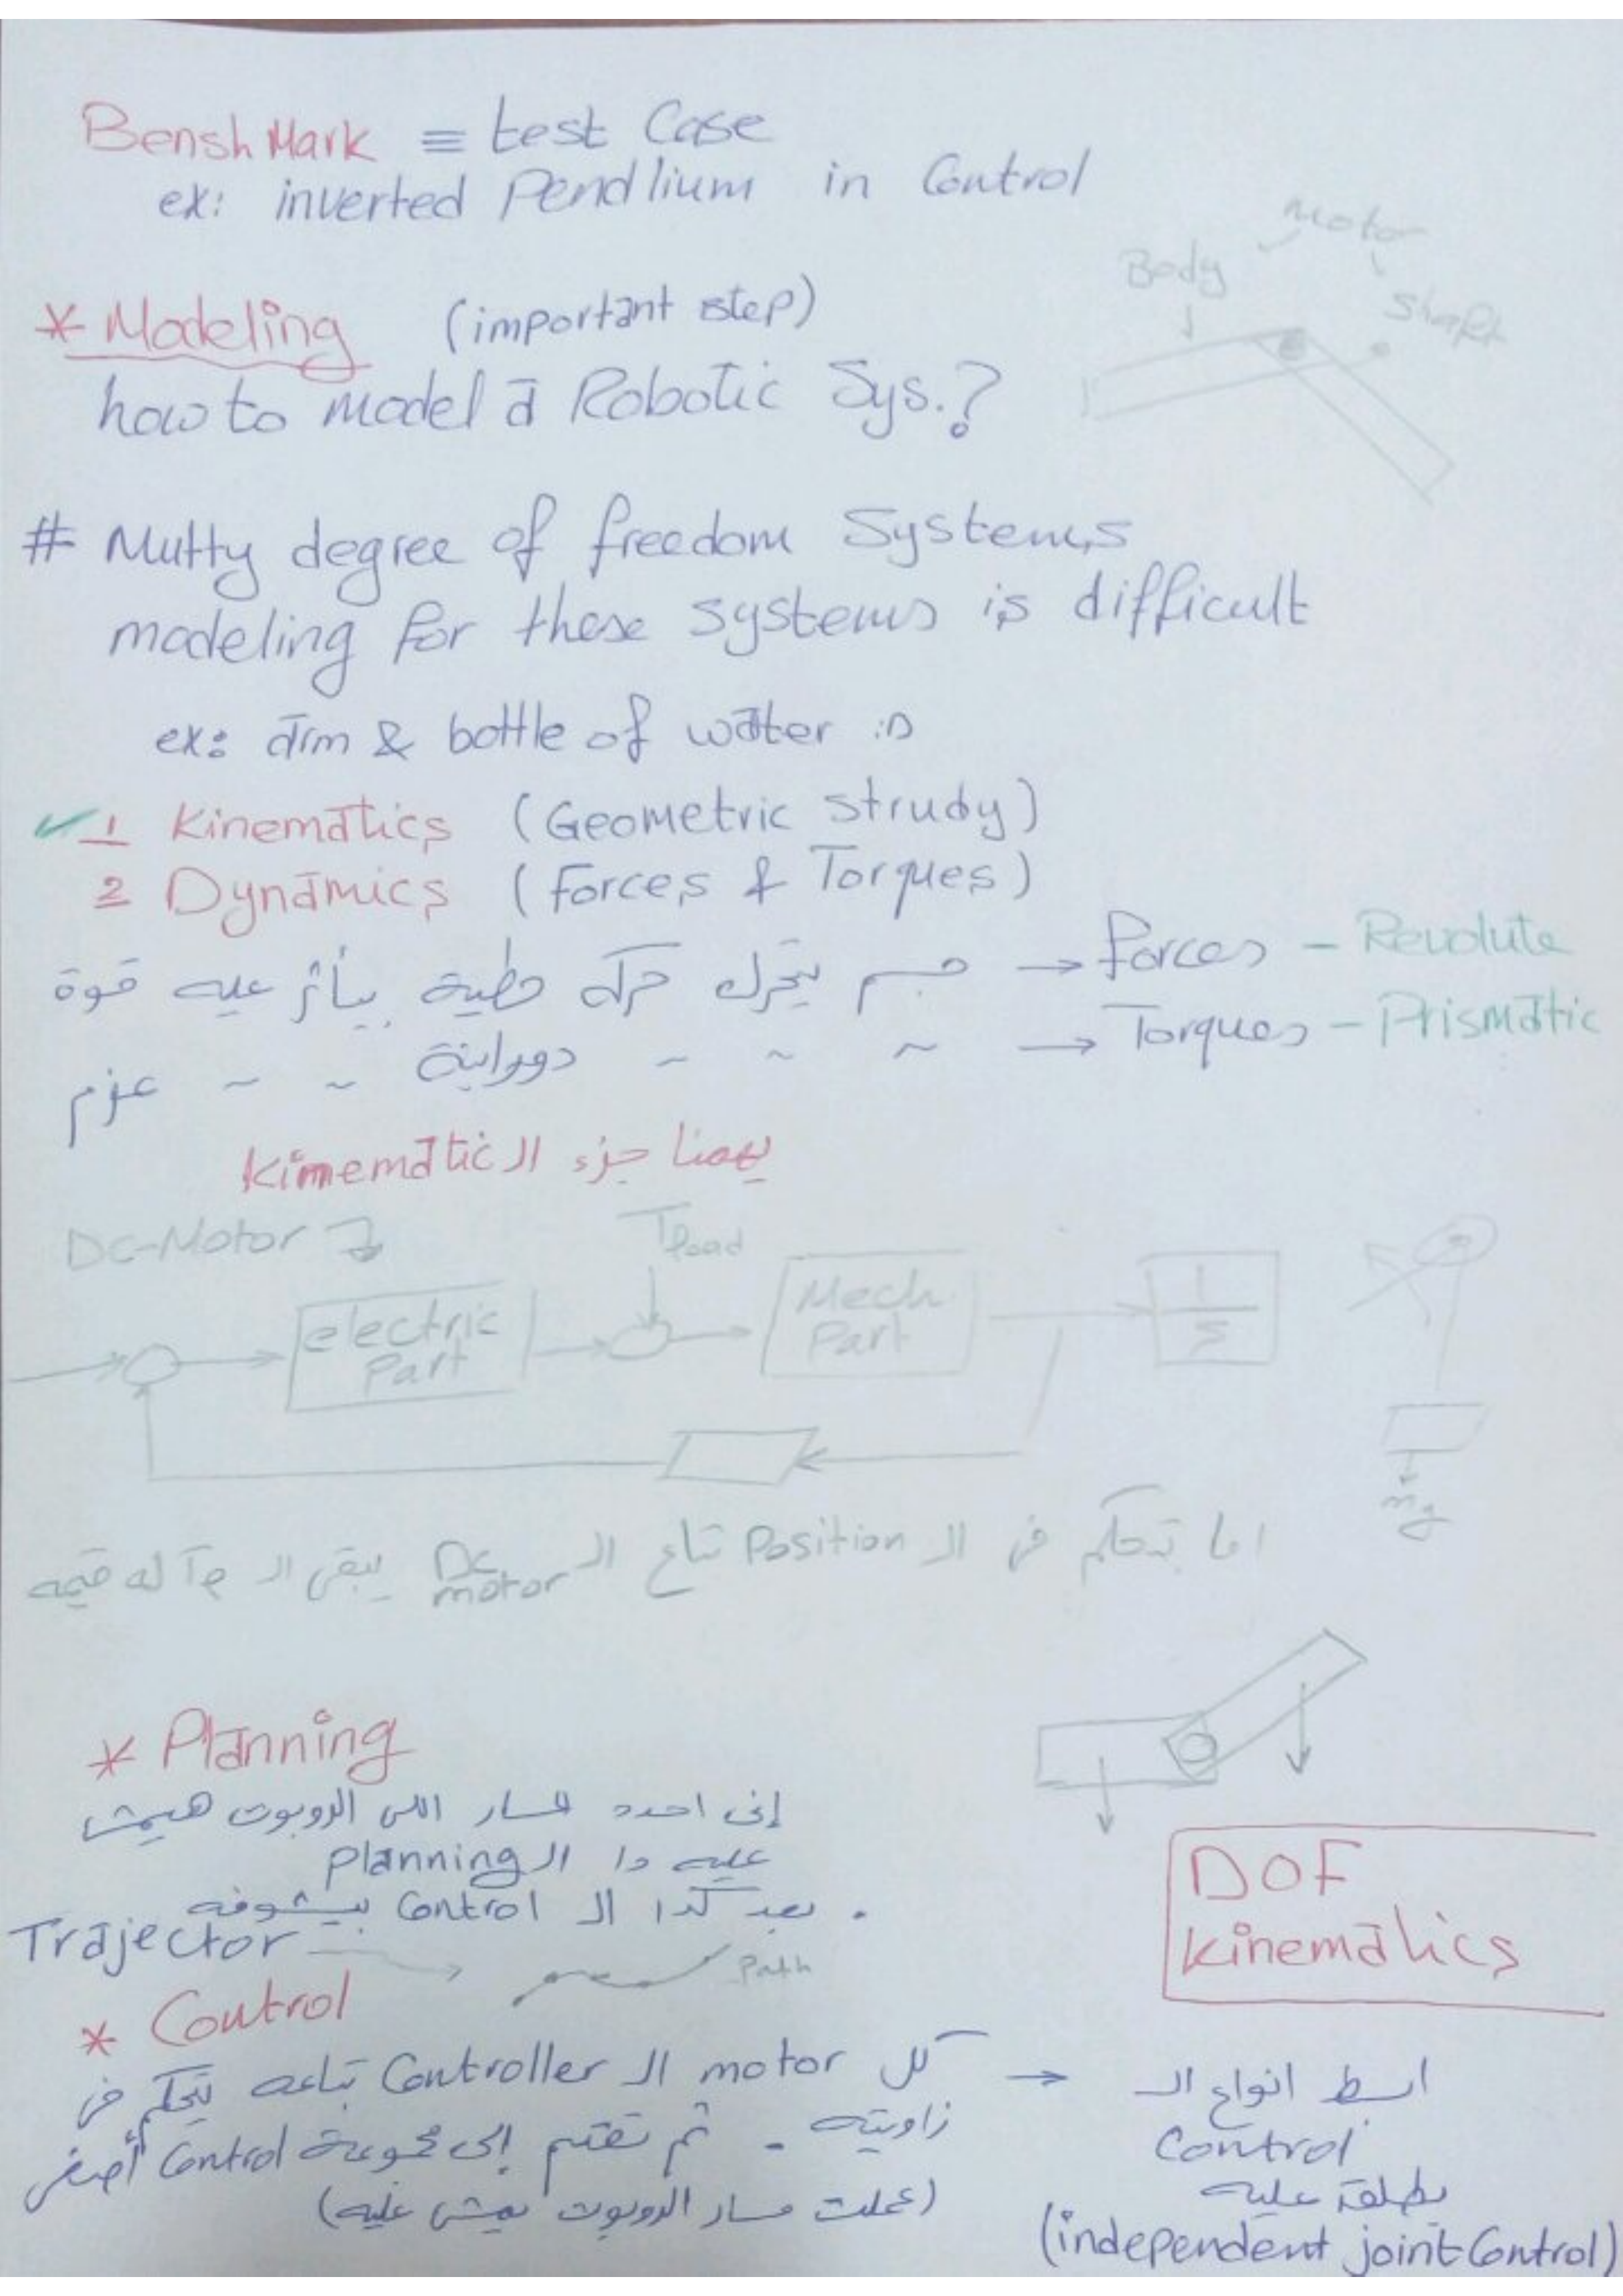 BenshMark ≡ test Case
ex: inverted Pendlium in Control
Motor
Body
Shaft
* Modeling (important step)
how to model a Robotic Sys.?
# Multy degree of freedom Systems
modeling for these systems is difficult
ex: arm & bottle of water :D
✓ 1 Kinematics (Geometric Strudy)
2 Dynamics (Forces & Torques)
جسم يتحرك حركة خطية بيأثر عليه قوة → forces - Revolute
~ ~ ~ دورانية ~ ~ عزم → Torques - Prismatic
يهمنا جزء الـ kinematic
Dc-Motor
Tload
electric Part
Mech Part
1/S
mg
اما بتحكم فى الـ Position بتاع الـ Dc motor يبقى الـ له قيمه
* Planning
إنى احدد المسار اللى الروبوت هيمشى
عليه دا الـ Planning
. بعد كدا الـ Control بيشوفه
Trajector
Path
DOF
Kinematics
* Control
كل motor الـ Controller بتاعه يتحكم فى
زاويته . ثم تقسم إلى مجموعة Control أصغر
(عملت مسار الروبوت يمشى عليه)
→ ابسط انواع الـ
Control
يطلق عليه
(independent joint Control)